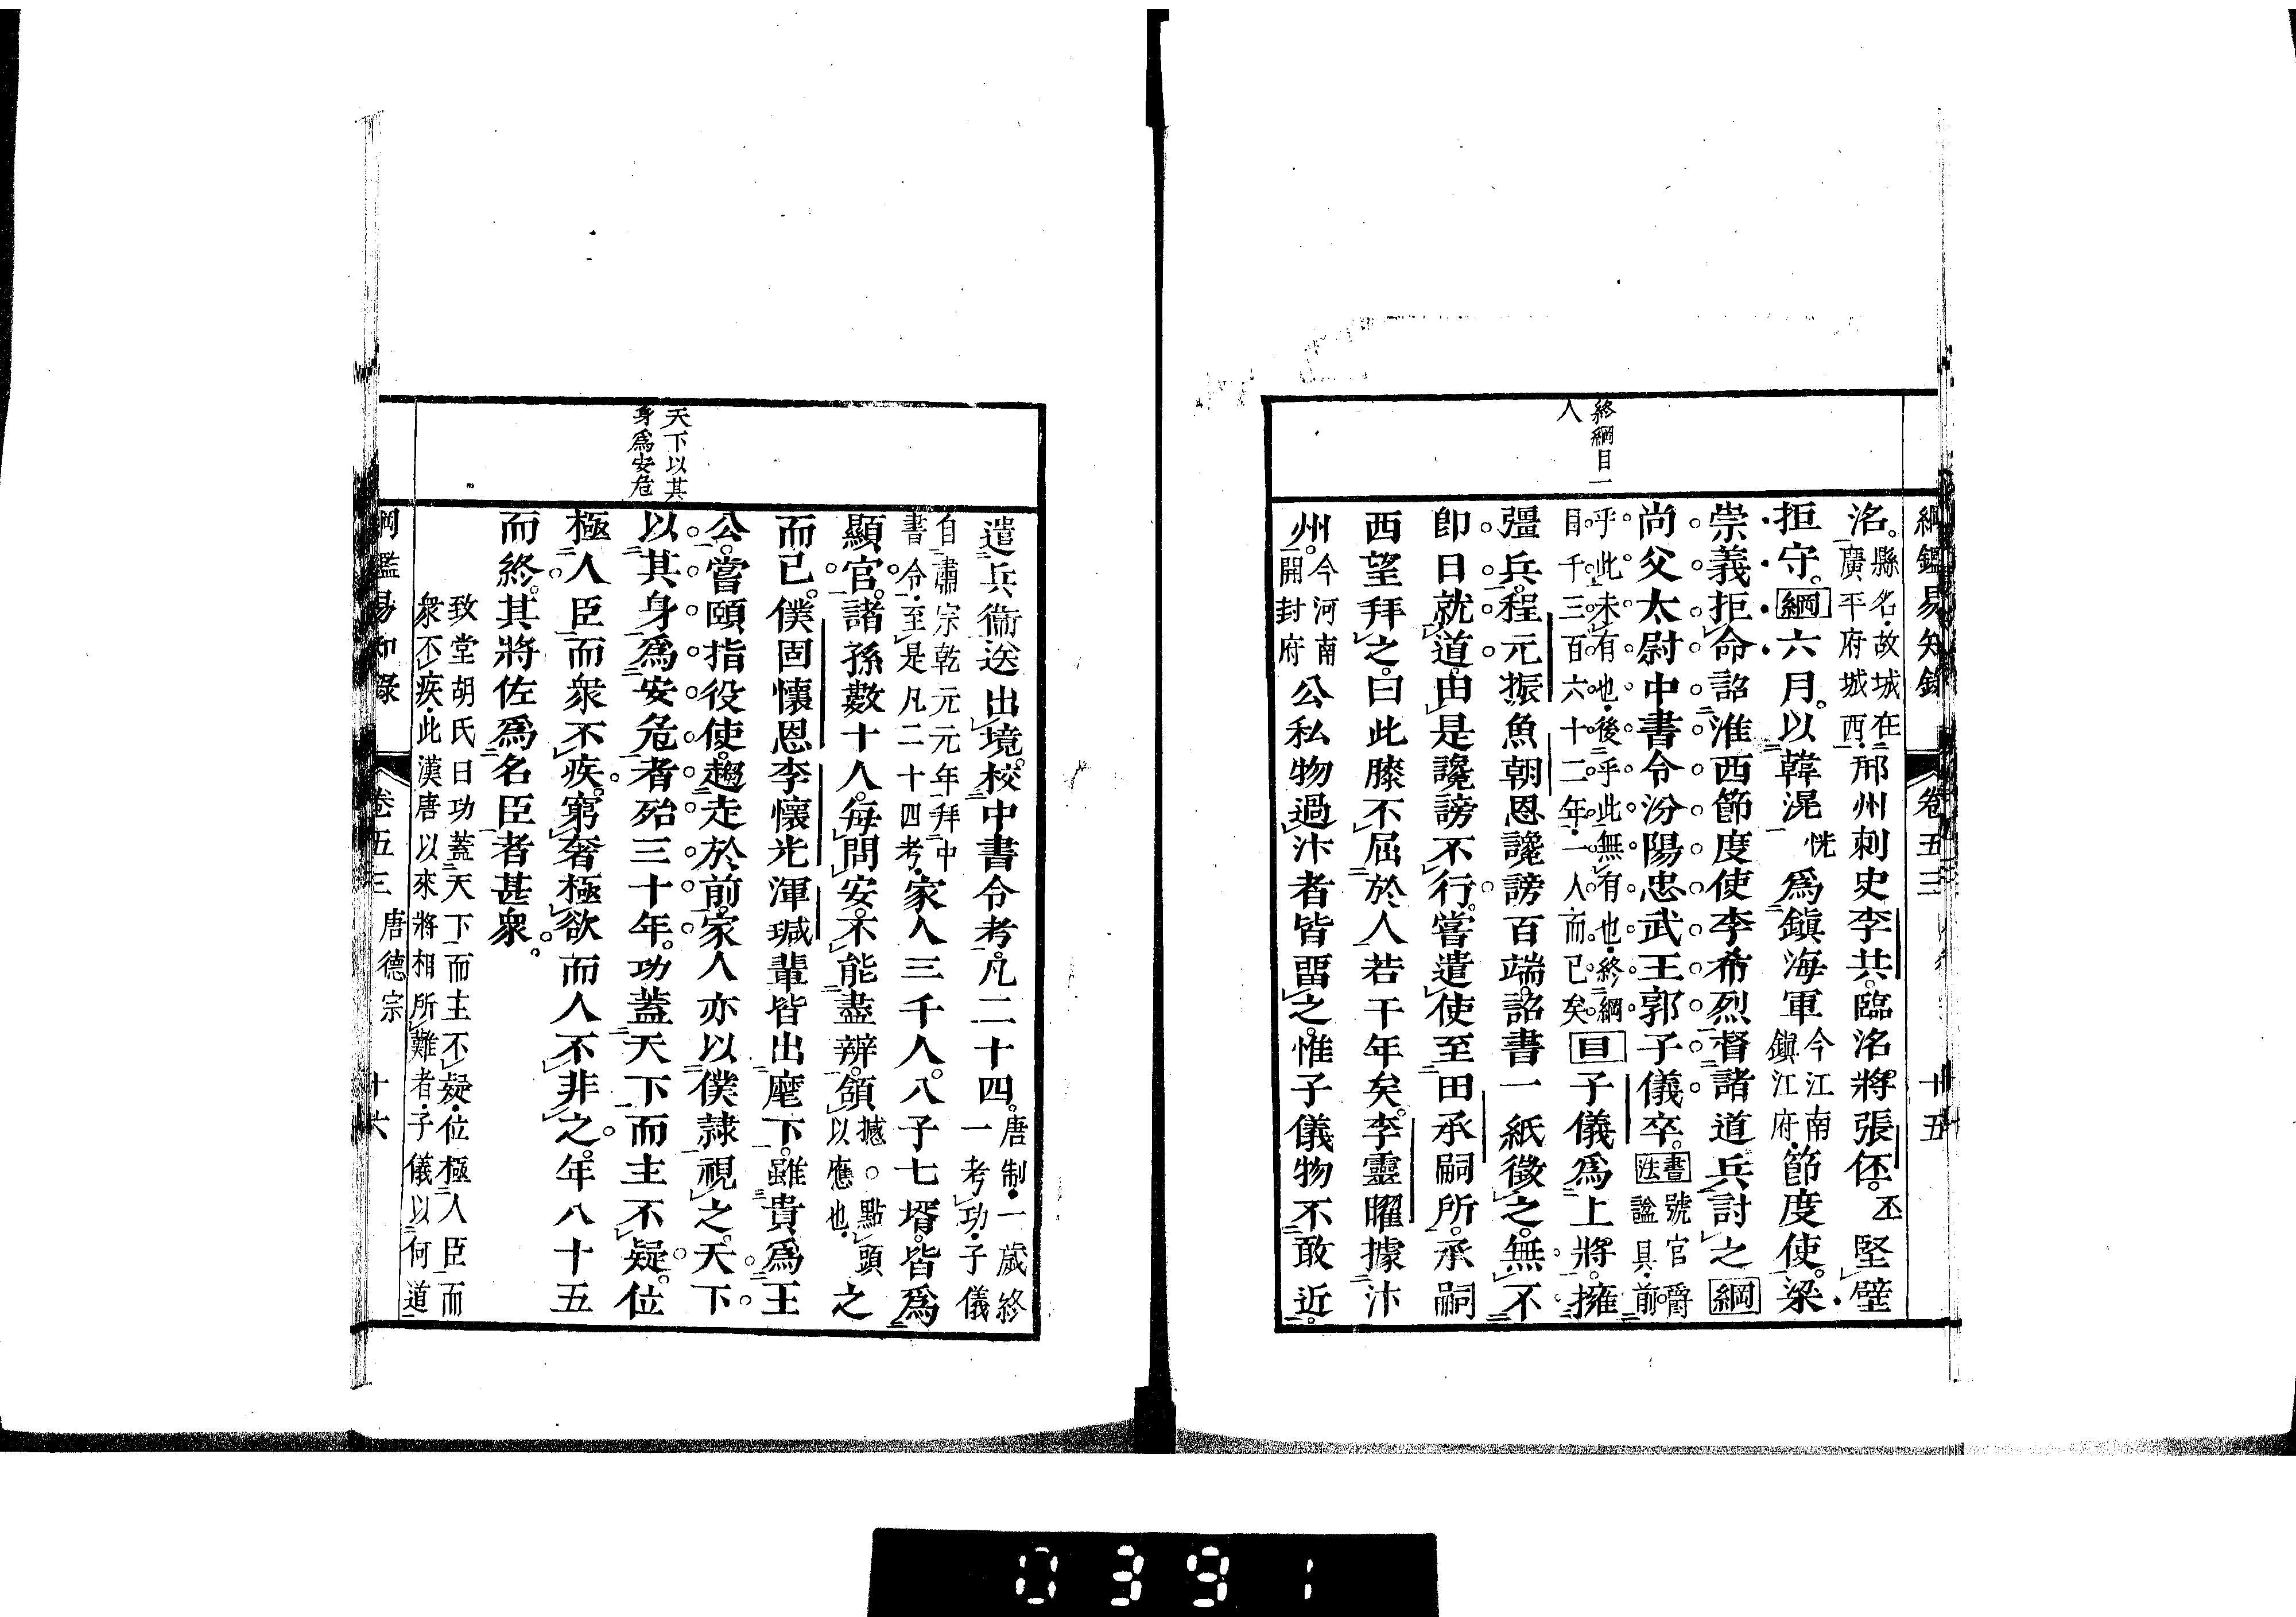 綱鑑易知錄 卷五三 十五
終綱目一
人
洺。縣名・故城在
廣平府城西・邢州刺史李共。臨洺將張伾。丕堅壁
拒守。綱六月。以韓滉恍爲鎭海軍今江南
鎭江府・節度使。梁
崇義拒命詔淮西節度使李希烈督諸道兵討之綱
尚父太尉中書令汾陽忠武王郭子儀卒。書法號官爵
謚具・前
乎・此未有也・後乎此無有也・終綱
目千三百六十二年・一人而已矣目子儀爲上將。擁
彊兵。程元振魚朝恩讒謗百端。詔書一紙徵之。無不
卽日就道。由是讒謗不行。嘗遣使至田承嗣所。承嗣
西望拜之。曰此膝不屈於人若干年矣。李靈曜據汴
州。今河南
開封府公私物過汴者皆畱之。惟子儀物不敢近。
天下以其
身爲安危
遣兵衞送出境。校中書令考。凡二十四。唐制・一歲終
一考功・子儀
自肅宗乾元元年拜中
書令・至是凡二十四考・家人三千人。八子七壻。皆爲
顯官。諸孫數十人。每問安。不能盡辨。頷撼。點頭
以應也・之
而已。僕固懷恩李懷光渾瑊輩皆出麾下。雖貴爲王
公。嘗頤指役使。趨走於前。家人亦以僕隸視之。天下
以其身爲安危者殆三十年。功蓋天下而主不疑。位
極人臣而衆不疾。窮奢極欲而人不非之。年八十五
而終。其將佐爲名臣者甚衆。
致堂胡氏曰功蓋天下而主不疑・位極人臣而
衆不疾・此漢唐以來將相所難者・子儀以何道
綱鑑易知錄 卷五三 唐德宗 十六
0391